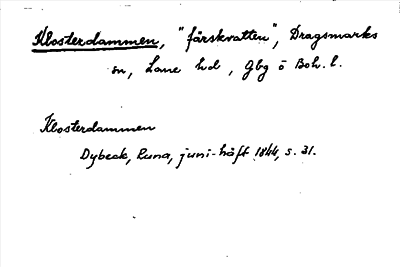 Klosterdammen, "färskvatten", Dragsmarks
sn, Lane hd, Gbg o Boh. l.
Klosterdammen
Dybeck, Runa, juni-häft 1844, s. 31.